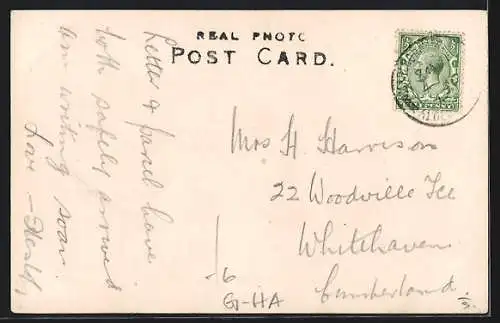 REAL PHOTO
POST CARD.
Letter & parcel have
both safely arrived
am writing soon.
Love —
Mrs H. Harrison
22 Woodville Tce
Whitehaven
Cumberland.
6
G-HA